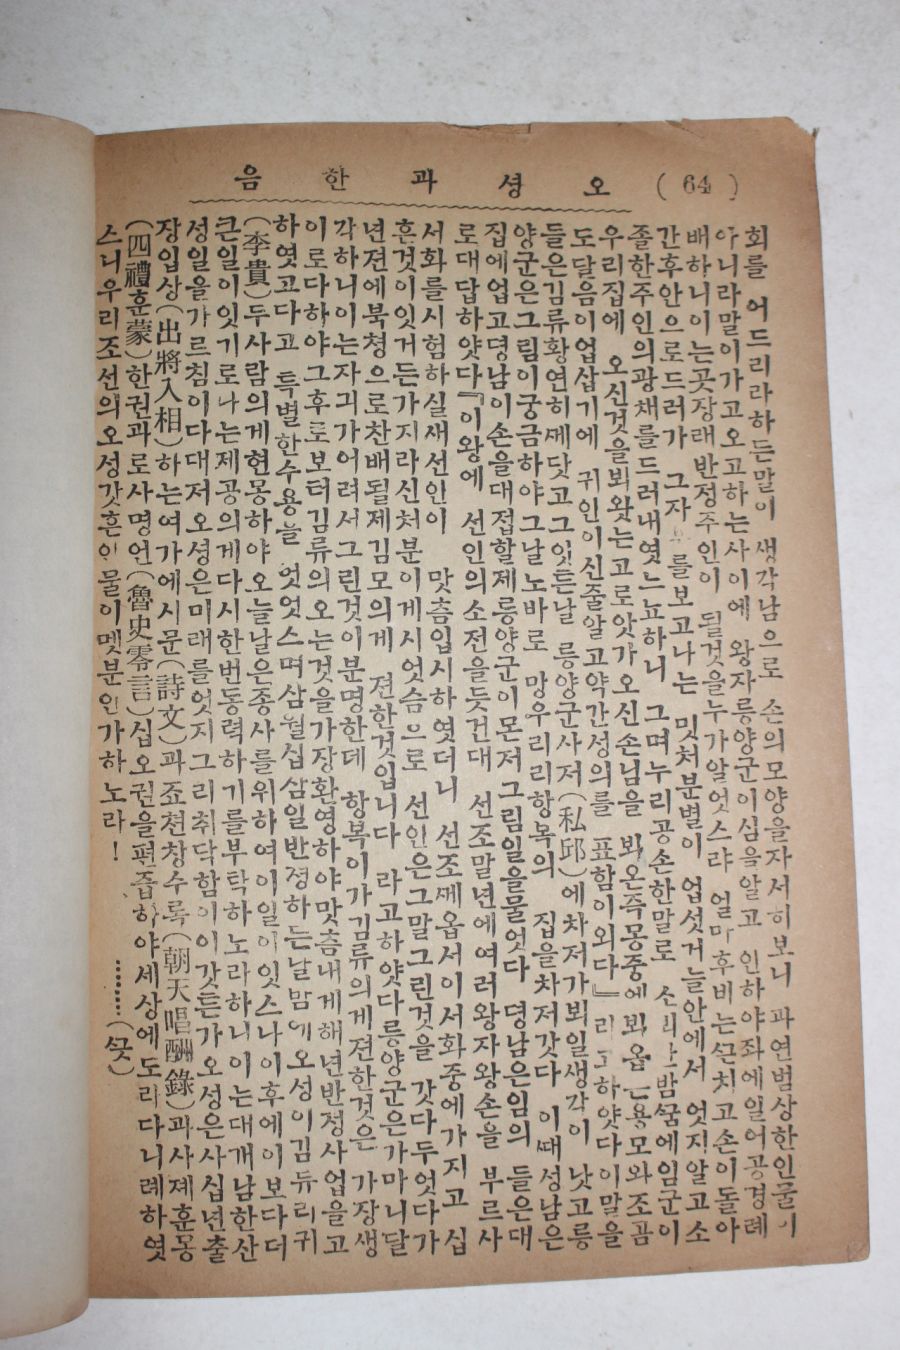 오 셩 과 한 음 (64)
회를 어드리라하든말이 생각남으로 손의모양을자서히보니 과연범상한인물이
아니라말이가고오고하는사이에 왕자릉양군이심을알고 인하야좌에일어공경례
배하니이는곳장래반정주인이 될것을누가알엇스랴 얼마후비는끈치고손이돌아
간후안으로드러가 그자 를보고나는 밋처분별이 업섯거늘안에서 엇지알고소
졸한주인의광채를드러내엿느뇨하니 그며누리공손한말로 소 밤꿈에임군이
우리집에 오신것을뵈왓는고로앗가오신손님을 뵈온즉몽중에뵈옵 용모와조곰
도달음이업삽기에 귀인이신줄알고약간성의를 표함이외다』라 하얏다이말을
들은김류황연히깨닷고그잇튼날 릉양군사저(私邸)에차저가뵈일생각이 낫고릉
양군은그림이궁금하야그날노바로 망우리리항복의 집을차저갓다 이때성남은
집에업고뎡남이손을대접할제릉양군이몬저그림일을물엇다 뎡남은임의 들은대
로대답하얏다『이왕에 선인의소전을듯건대 선조말년에여러왕자왕손을 부르사
서화를시험하실새선인이 맛츰입시하엿더니 선조께옵서이서화중에가지고 십
흔것이잇거든가지라신처분이게시엇슴으로 선인은그말그린것을 갓다두엇다가
년젼에북쳥으로찬배될제김모의게 젼한것입니다 라고하얏다릉양군은가마니달
각하니이는자긔가어려서그린것이분명한데 항복이가김류의게젼한것은 가장생
이로다하야그후로보터김류의오는것을가장환영하야맛츰내게해년반정사업을고
하엿고다고 특별한수용늘 엇엇스며삼월십삼일반졍하든날밤에오성이김듀리귀
(李貴)두사람의게현몽하야오늘날은종사를위하여이일이잇스나이후에이보다더
큰일이잇기로나는제공의게다시한번동력하기를부탁하노라하니이는대개남한산
성일을가르침이다대저오셩은미래를엇지그리취닥함이이갓튼가오성은사십년출
장입상(出將入相)하는여가에시문(詩文)과죠쳔창수록(朝天唱酬錄)과사졔훈몽
(四禮훈蒙)한권과로사명언(魯史零言)십오권을편즙하야세상에도라다니례하엿
스니우리조선의오성갓흔인물이멧분인가하노라! ………(끗)